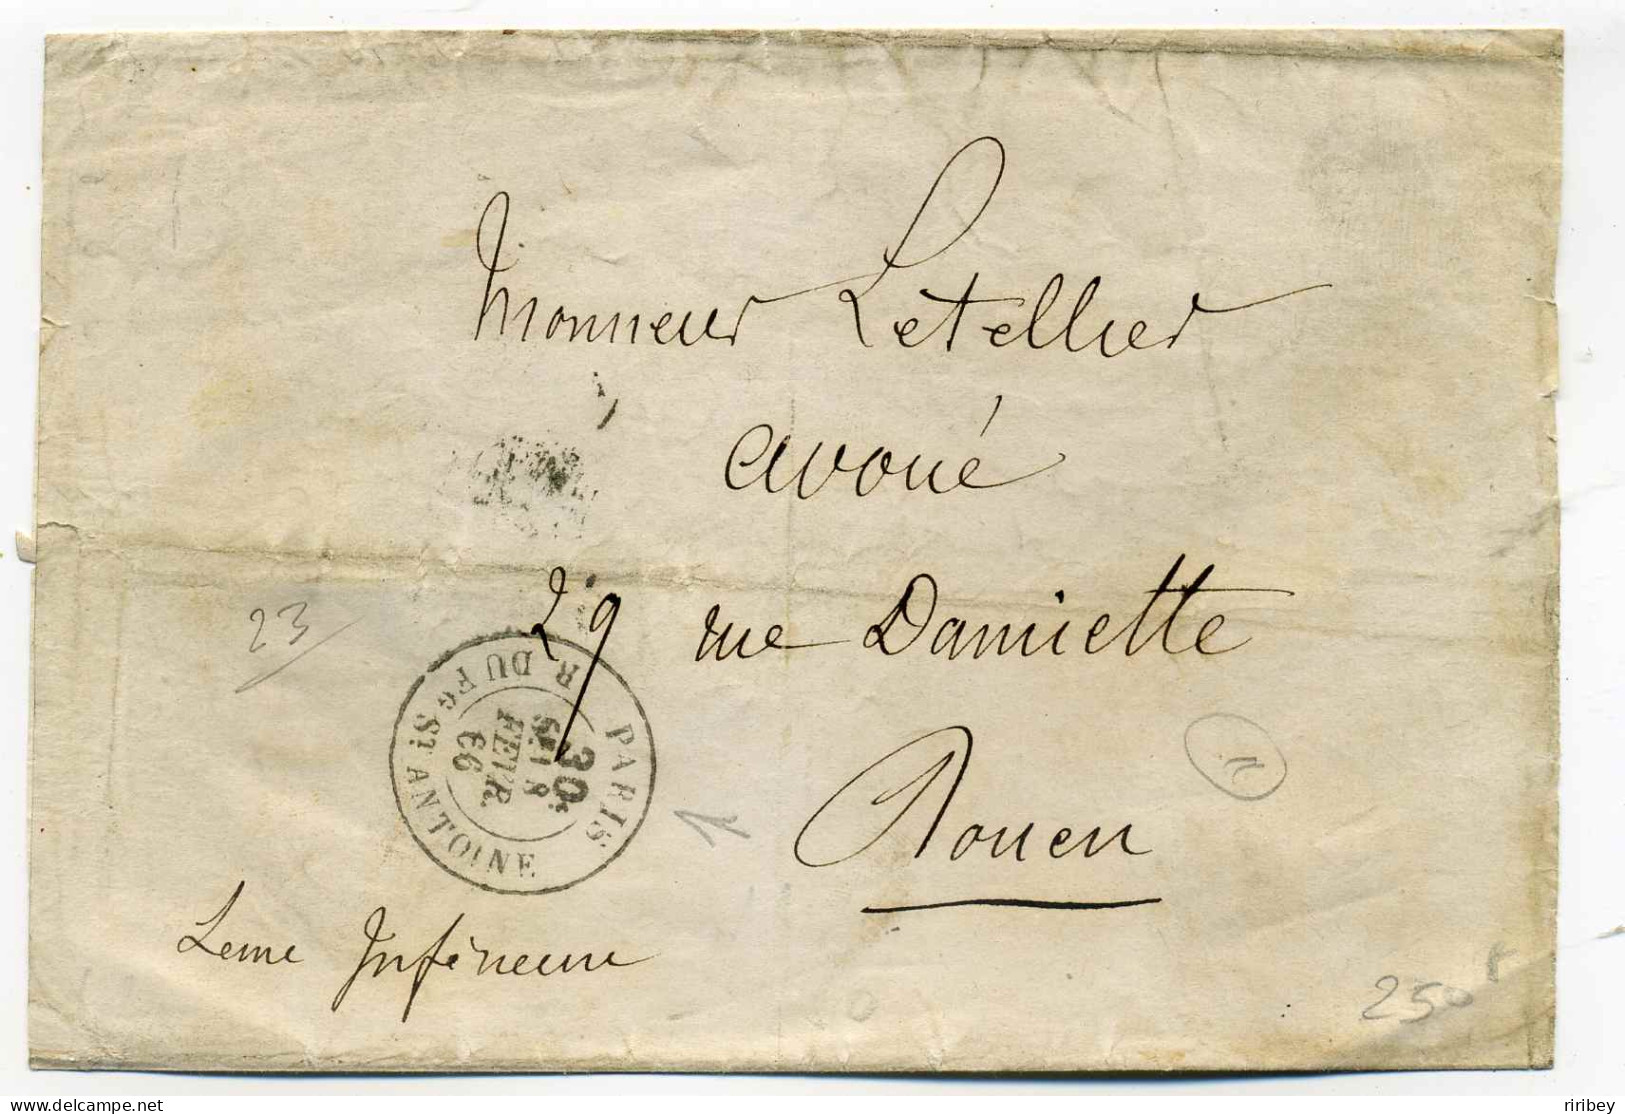 Monsieur Letellier
avoué
29 rue Damiette
Rouen
Seine Inférieure
PARIS
R. DU Fg St ANTOINE
30
8
FEVR.
66
23
1
250 F
delcampe.net
riribey